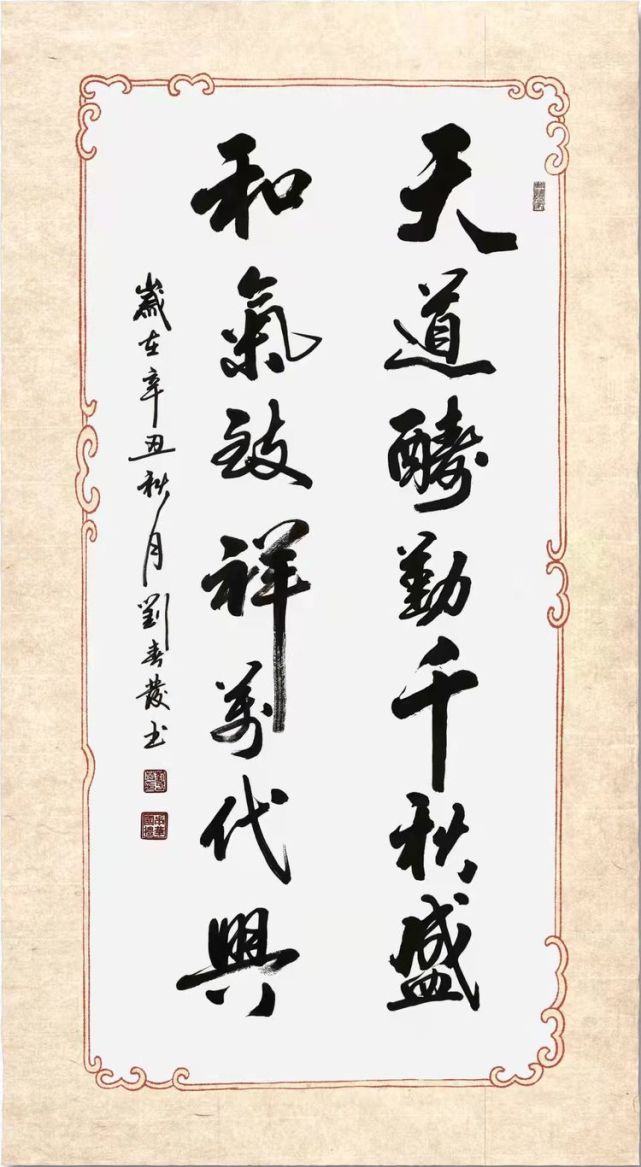 天道酬勤千秋盛
和氣致祥萬代興
歲在辛丑秋月劉春發书
中華